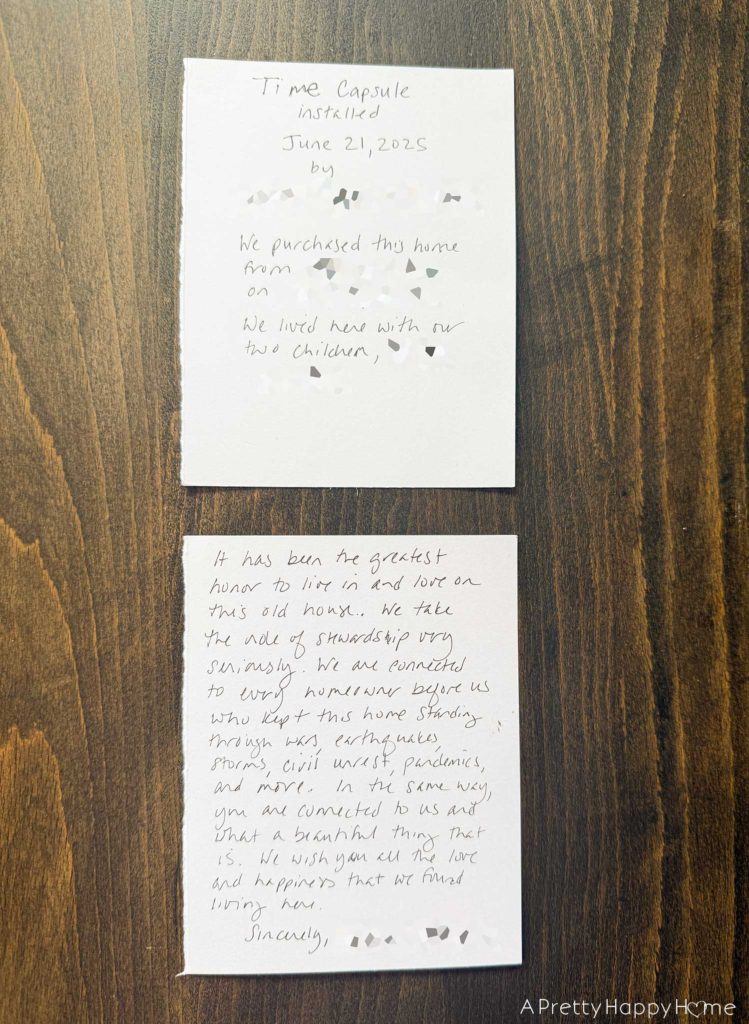 Time Capsule
installed
June 21, 2025
by
We purchased this home
from
on
We lived here with our
two children,
It has been the greatest
honor to live in and love on
this old house. We take
the role of stewardship very
seriously. We are connected
to every homeowner before us
who kept this home standing
through wars, earthquakes,
storms, civil unrest, pandemics,
and more. In the same way,
you are connected to us and
what a beautiful thing that
is. We wish you all the love
and happiness that we found
living here.
Sincerely,
APrettyHappyHome